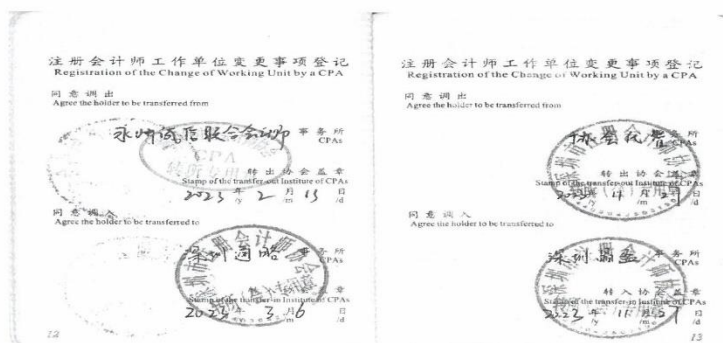 注册会计师工作单位变更事项登记
Registration of the Change of Working Unit by a CPA
同意调出
Agree the holder to be transferred from
永州诚信联合会计师 事务所
CPAs
CPA
转所专用
转出协会盖章
Stamp of the transfer-out Institute of CPAs
2023 年 2 月 13 日
/y /m /d
同意调入
Agree the holder to be transferred to
深圳 事务所
CPAs
Stamp of the transfer-in Institute of CPAs
2023 年 3 月 6 日
/y /m /d
12
注册会计师工作单位变更事项登记
Registration of the Change of Working Unit by a CPA
同意调出
Agree the holder to be transferred from
协会代管 事务所
CPAs
转出协会盖章
Stamp of the transfer-out Institute of CPAs
2023 年 11 月 27 日
/y /m /d
同意调入
Agree the holder to be transferred to
深圳 事务所
CPAs
转入协会盖章
Stamp of the transfer-in Institute of CPAs
2023 年 11 月 27 日
/y /m /d
13